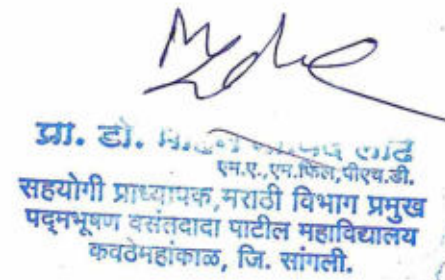 प्रा. डॉ. लाढे
एम.ए.,एम.फिल,पीएच.डी.
सहयोगी प्राध्यापक,मराठी विभाग प्रमुख
पद्मभूषण वसंतदादा पाटील महाविद्यालय
कवठेमहांकाळ, जि. सांगली.